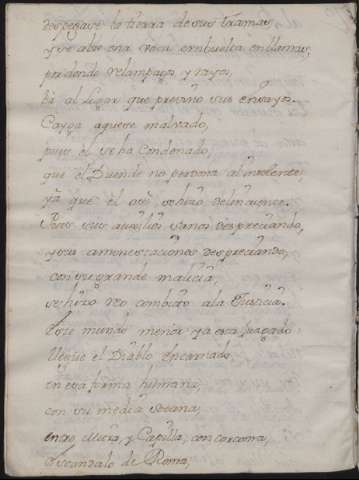 despegase la tierra de sus tramas
y se abre una voca embuelta en llamas,
por donde relampagos, y rayos,
al lugar que previno sus ensayos.
Cayga aquese malvado,
pues el se ha condenado,
que el Duende no perdona al insolente,
ya que el asi se hizo delinquente.
Pues sus auxilios sanos despreciando,
y sus amonestaciones despreciando,
con su grande malicia,
se hizo reo combicto a la Justicia.
Este mundo menor ya esta juzgado
llegue el Diablo encarnado
en esa forma humana,
con su media sotana,
Mitra, y Capilla, con corcoma,
escandalo de Roma,